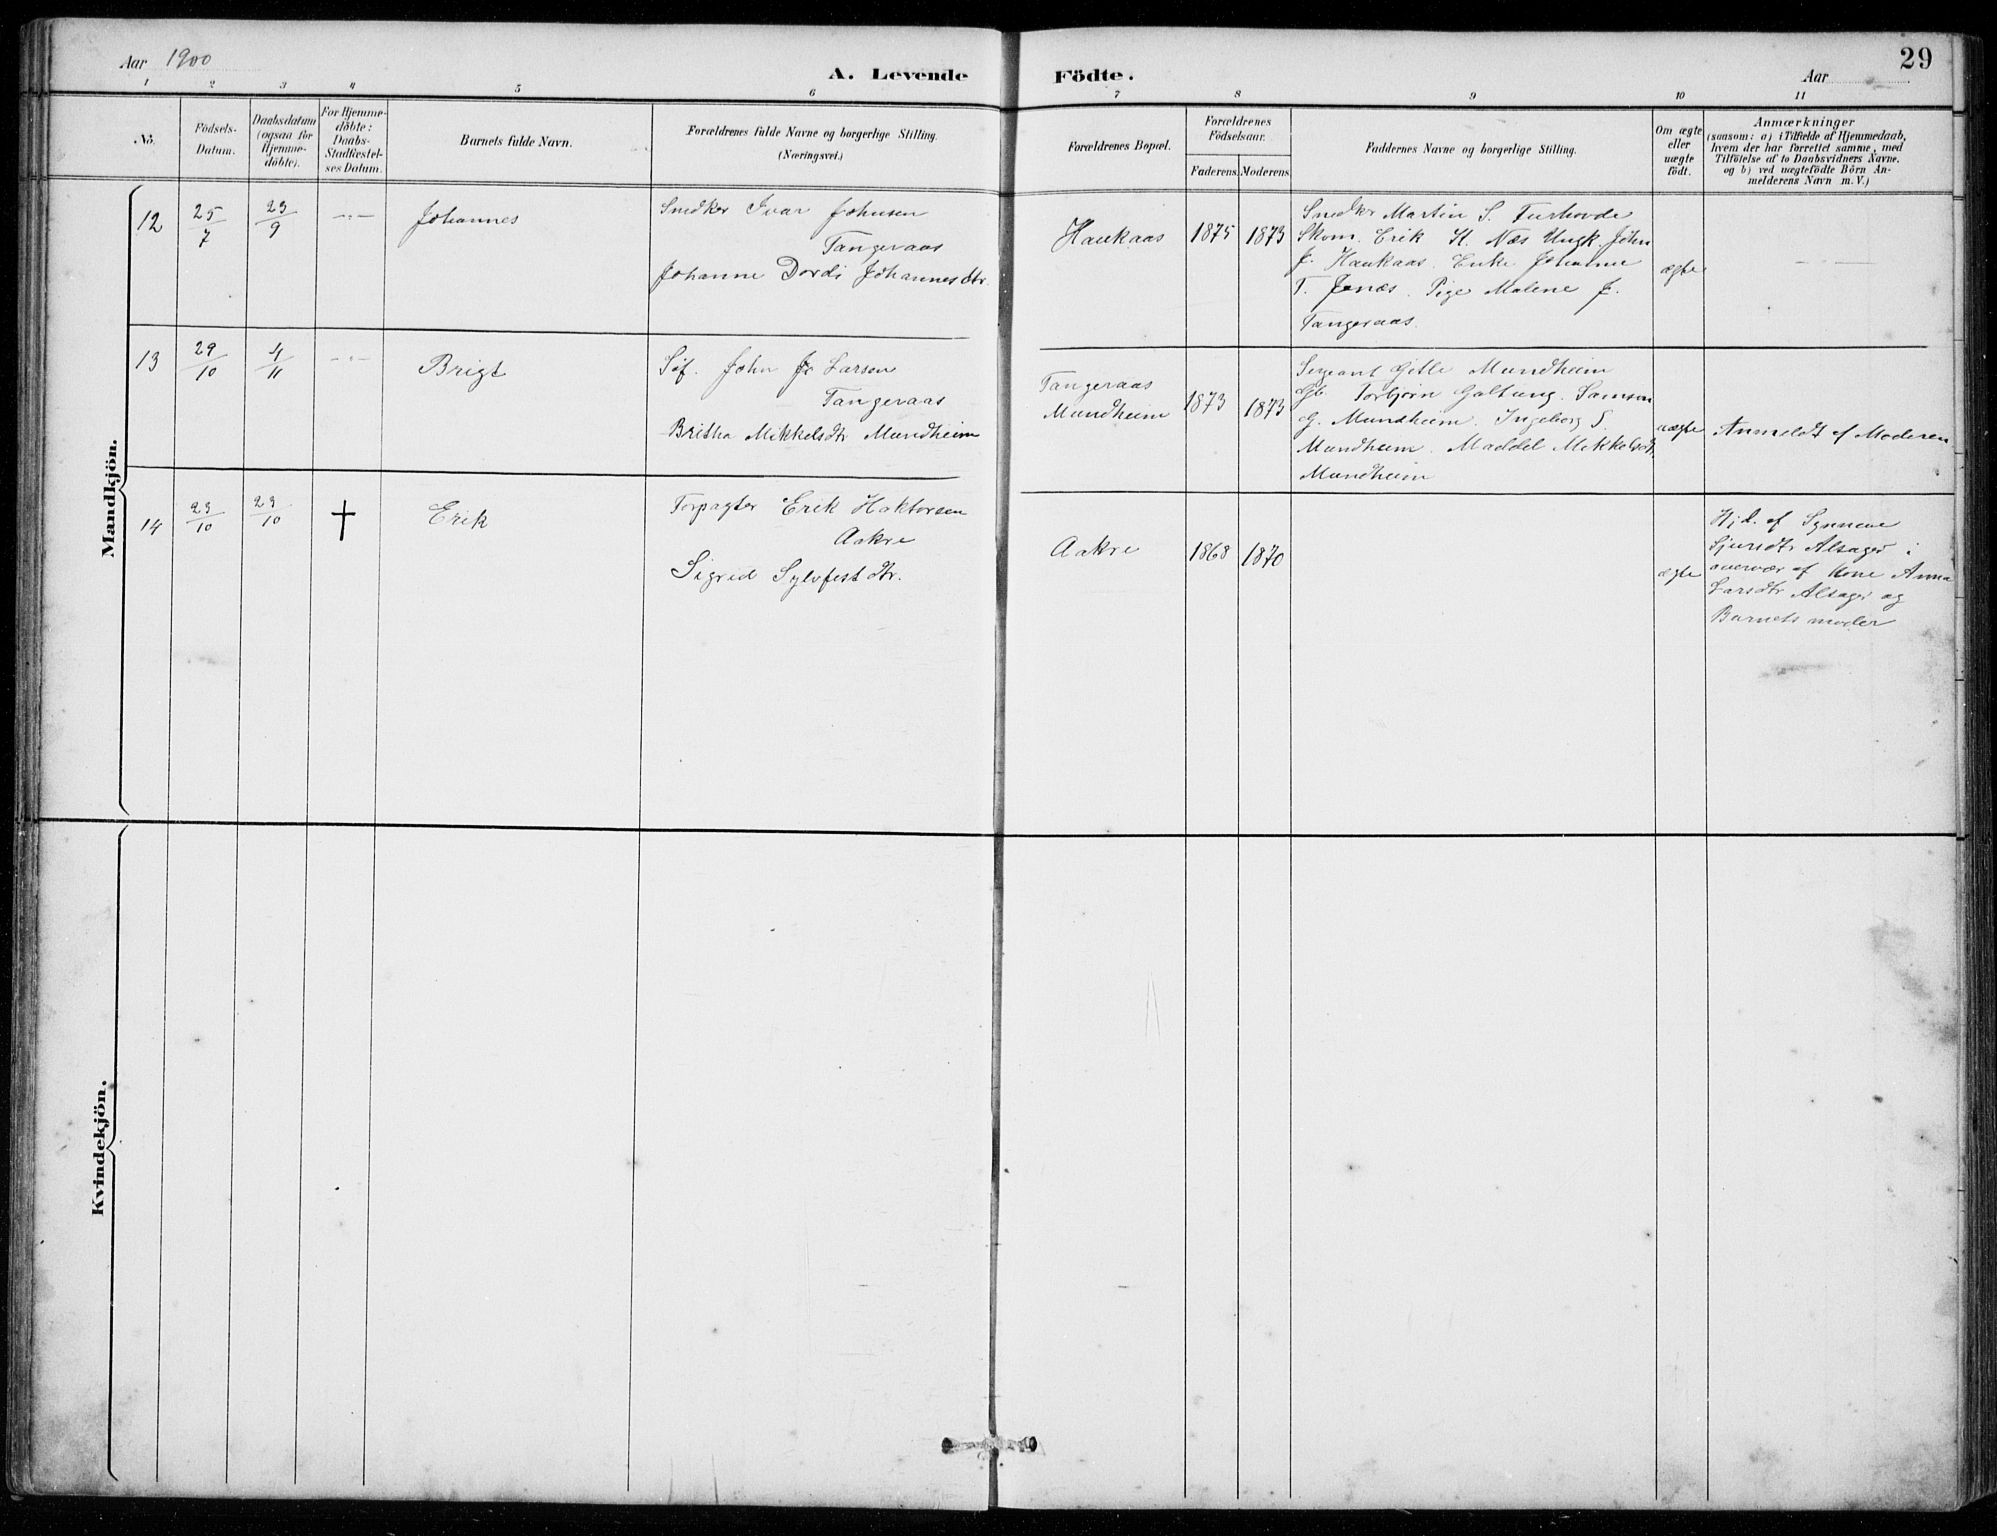 Aar 1900
A. Levende Födte.
Aar
29
1 2 3 4 5 6 7 8 9 10 11
No.
Födsels-
Datum.
Daabsdatum
(ogsaa for
Hjemme-
döbte).
For Hjemme-
döbte:
Daabs-
Stadfæstel-
ses Datum.
Barnets fulde Navn.
Forældrenes fulde Navne og borgerlige Stilling.
(Næringsvei.)
Forældrenes Bopæl.
Forældrenes
Födselsaar.
Faderens. Moderens.
Faddernes Navne og borgerlige Stilling.
Om ægte
eller
uægte
födt.
Anmærkninger
(saasom: a) i Tilfælde af Hjemmedaab,
hvem der har forrettet samme, med
Tilföielse af to Daabsvidners Navne.
og b) ved uægtefödte Börn An-
melderens Navn m. V.)
Mandkjön.
12
25/7
23/9
Johannes
Snedker Ivar Johnsen
Tangeraas
Johanne Dordi Johannesdtr.
Haukaas
1875
1873
Snedker Martin S.
Skom. Erik H. Næs Ungk. John
J. Haukaas. Enke Johanne
T. Jonæs. Pige Malene J.
Tangeraas.
ægte
13
29/10
4/11
Brigt
Søf. John Larsen
Tangeraas
Britha Mikkelsdtr Mundheim
Tangeraas
Mundheim
1873
1873
Sergeant Gitle Mundheim
Gb. Torbjørn Galtung. Samson
G. Mundheim. Ingeborg S.
Mundheim. Maddel Mikkelsdtr
Mundheim
uægte
Anmeldt af Moderen
14
23/10
23/10
†
Erik
Forpagter Erik Haktorsen
Aakre
Sigrid Sylvfestdtr.
Aakre
1868
1870
ægte
Hjd. af Synneve
Sjursdtr Alsager i
overvær af Kone Anna
Larsdtr Alsager og
Barnets moder
Kvindekjön.